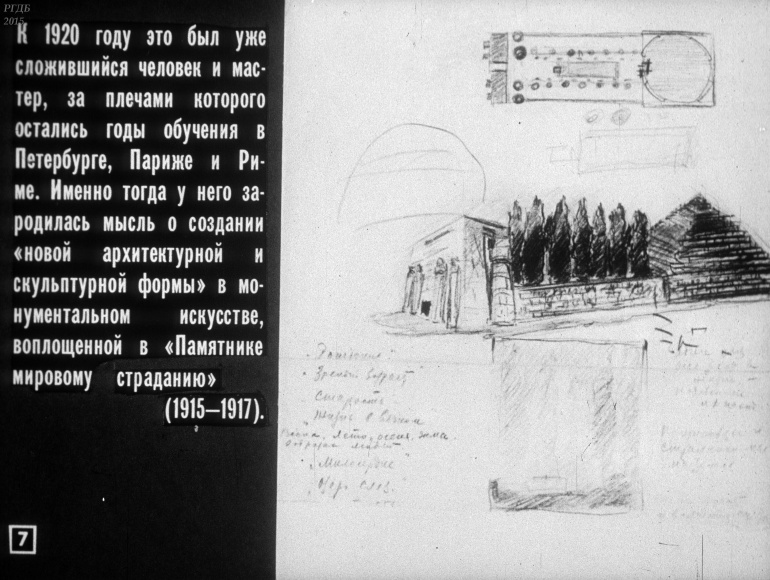 РГДБ
2015
К 1920 году это был уже
сложившийся человек и мас-
тер, за плечами которого
остались годы обучения в
Петербурге, Париже и Ри-
ме. Именно тогда у него за-
родилась мысль о создании
«новой архитектурной и
скульптурной формы» в мо-
нументальном искусстве,
воплощенной в «Памятнике
мировому страданию»
(1915—1917).
7
"Зрелый возраст"
"Старость"
лето, осень, зима.
"Милосердие"
"Озеро слез."